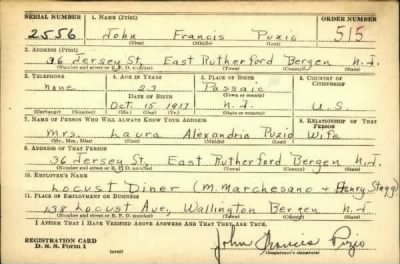 SERIAL NUMBER 1. NAME (Print) ORDER NUMBER
2556 John Francis Puzio 515
(First) (Middle) (Last)
2. ADDRESS (Print)
36 Jersey St, East Rutherford Bergen N.J.
(Number and street or R. F. D. number) (Town) (County) (State)
3. TELEPHONE 4. AGE IN YEARS 5. PLACE OF BIRTH 6. COUNTRY OF CITIZENSHIP
none 23 Passaic
DATE OF BIRTH (Town or county)
Oct. 15 1917 N.J. U.S.
(Exchange) (Number) (Mo.) (Day) (Yr.) (State or country)
7. NAME OF PERSON WHO WILL ALWAYS KNOW YOUR ADDRESS 8. RELATIONSHIP OF THAT PERSON
Mrs. Laura Alexandria Puzio Wife
(Mr., Mrs., Miss) (First) (Middle) (Last)
9. ADDRESS OF THAT PERSON
36 Jersey St, East Rutherford Bergen N.J.
(Number and street or R. F. D. number) (Town) (County) (State)
10. EMPLOYER'S NAME
Locust Diner (M. Marchesano + Henry Stagg)
11. PLACE OF EMPLOYMENT OR BUSINESS
138 Locust Ave, Wallington Bergen N.J.
(Number and street or R. F. D. number) (Town) (County) (State)
I AFFIRM THAT I HAVE VERIFIED ABOVE ANSWERS AND THAT THEY ARE TRUE.
REGISTRATION CARD
D. S. S. Form 1 (over) John Francis Puzio
(Registrant's signature)